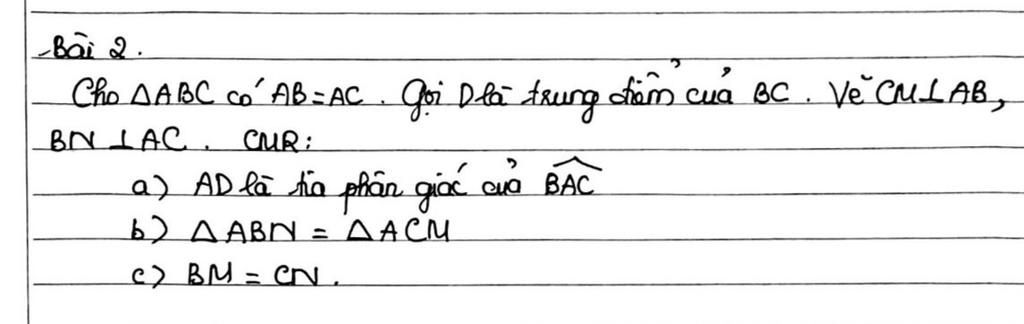 Bài 2.
Cho ΔABC có AB=AC. Gọi D là trung điểm của BC. Vẽ CM⊥AB,
BN⊥AC. CMR:
a) AD là tia phân giác của \widehat{BAC}
b) ΔABN = ΔACM
c) BM = CN.